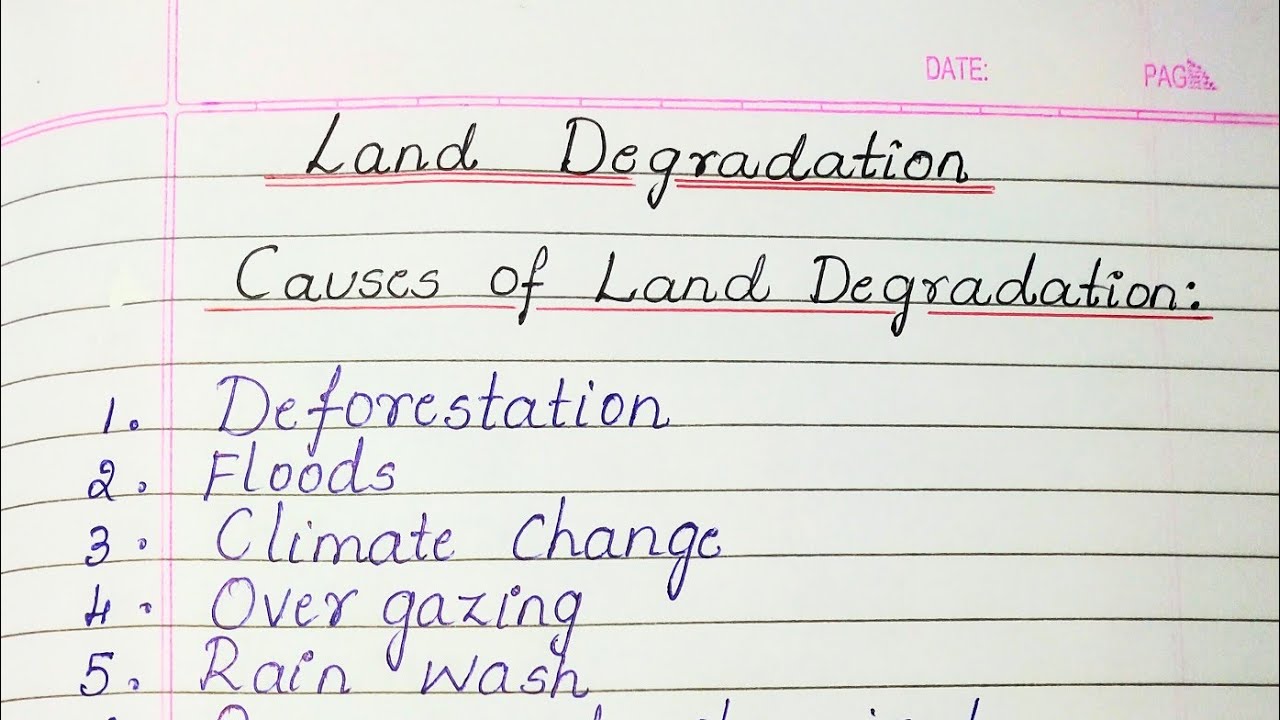 DATE:
PAGE
Land Degradation
Causes of Land Degradation:
1. Deforestation
2. Floods
3. Climate change
4. Over gazing
5. Rain wash